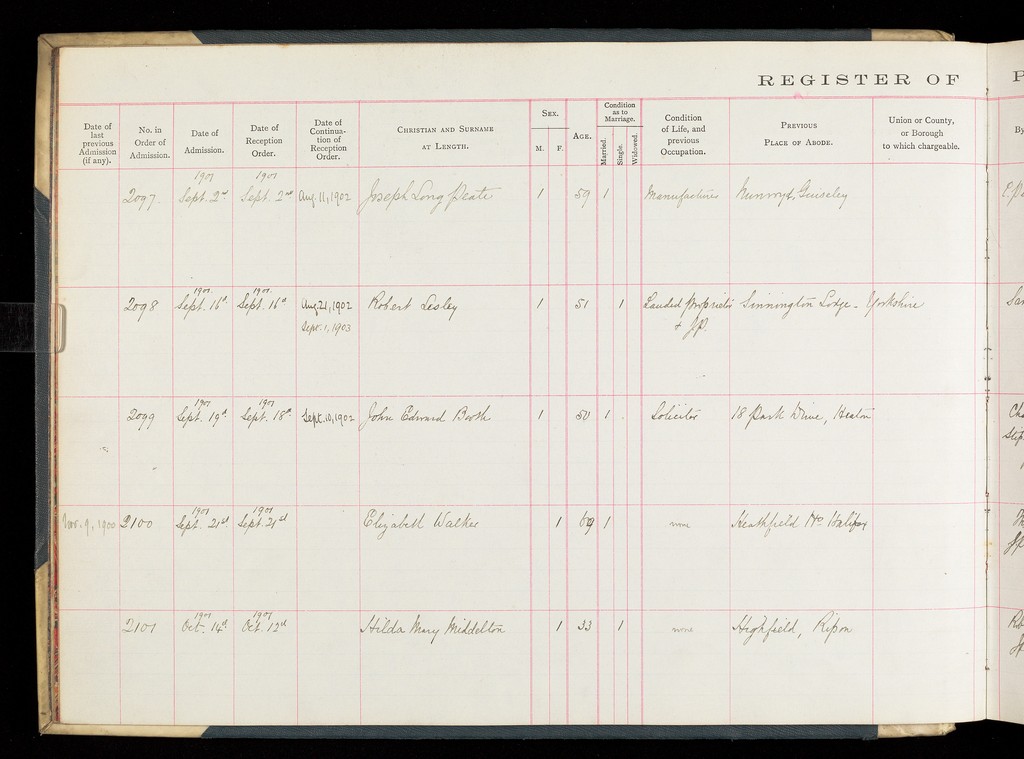 REGISTER OF P
Date of last previous Admission (if any).
No. in Order of Admission.
Date of Admission.
Date of Reception Order.
Date of Continua- tion of Reception Order.
Christian and Surname at Length.
Sex.
M. F.
Age.
Condition as to Marriage.
Married. Single. Widowed.
Condition of Life, and previous Occupation.
Previous Place of Abode.
Union or County, or Borough to which chargeable.
By
1901 1901
2097. Sept. 2nd Sept. 2nd Aug. 11, 1902 Joseph Long Peate 1 59 1 Manufacturer Guiseley
1901 1901
2098 Sept. 16th Sept. 16th Aug 21, 1902 Robert Lesley 1 51 1 Landed Proprietor Sinnington Lodge - Yorkshire
Sept. 1, 1903 & J.P.
1901 1901
2099 Sept. 19th Sept. 18th Sept. 10, 1902 John Edward Booth 1 50 1 Solicitor 18 Park Drive, Heaton
1901 1901
Nov. 9, 1900 2100 Sept. 21st Sept. 21st Elizabeth Walker 1 69 1 none Heathfield Ho Halifax
1901 1901
2101 Oct. 14th Oct. 12th Hilda Mary Middelton 1 33 1 none Highfield, Ripon